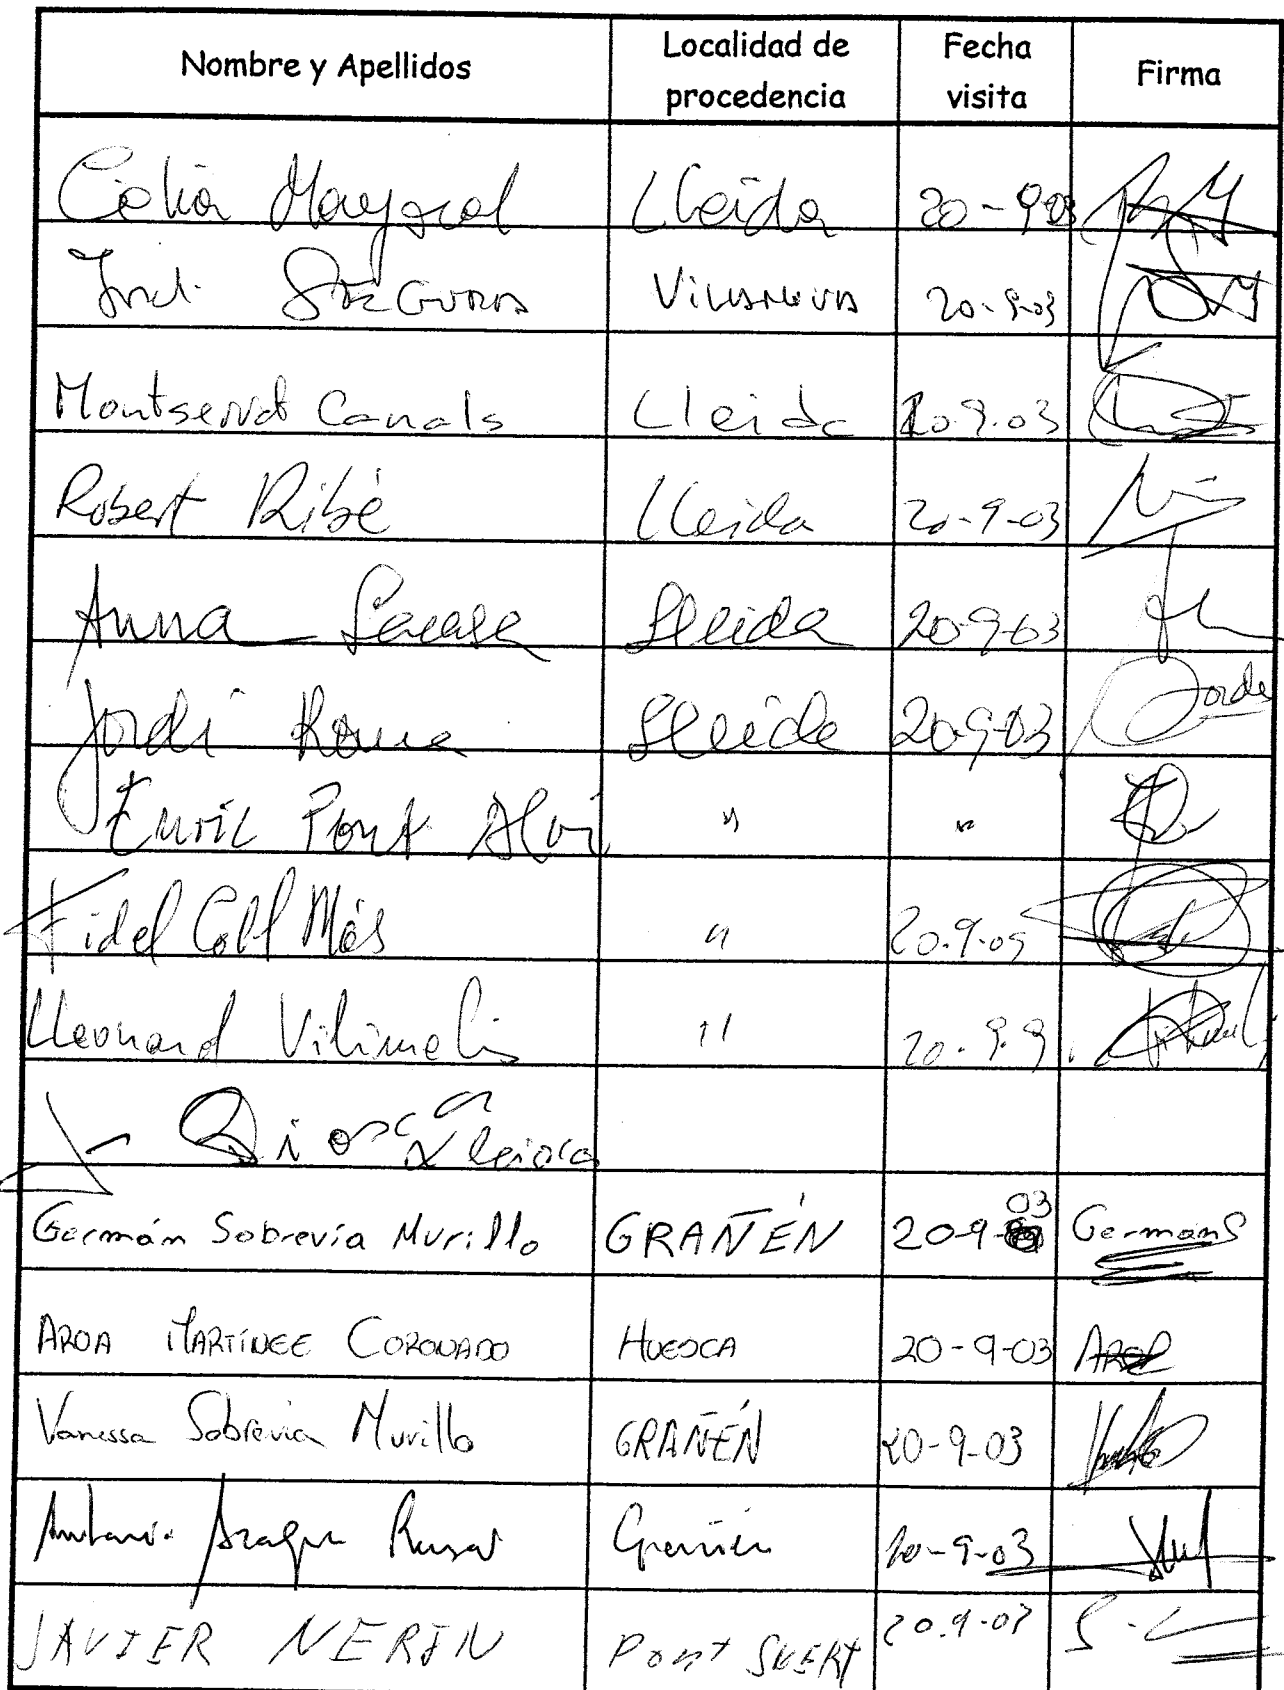 Nombre y Apellidos Localidad de procedencia Fecha visita Firma
Celia Mayoral Lleida 20-9-03
Jordi Segura Vilanova 20-9-03
Montserrat Canals Lleida 20.9.03
Robert Ribé Lleida 20-9-03
Anna Lleida 20-9-03
Jordi Roma Lleida 20-9-03 Jordi
Enric Pont " "
Fidel Coll Mòs " 20.9.03
Lleonard Vilimelis " 20.9.9
Lleida
Germán Sobrevía Murillo GRAÑÉN 20-9-03 GermanS
AROA MARTÍNEZ CORONADO HUESCA 20-9-03 AROA
Vanessa Sobrevia Murillo GRAÑÉN 20-9-03
Antonio Grañén 20-9-03
JAVIER NERIN Pont SUERT 20.9-03